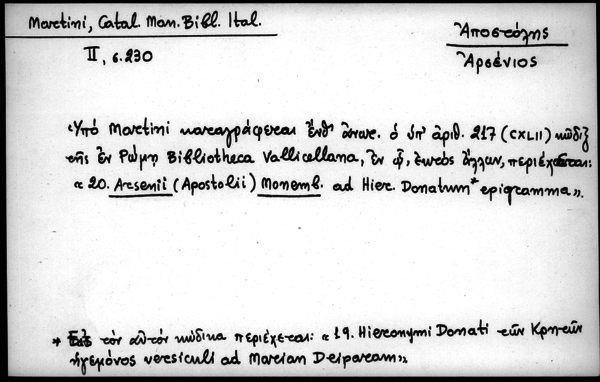 Martini, Catal. Man. Bibl. Ital.
II, σ. 230
Ἀποστόλης
Ἀρσένιος
Ὑπό Martini καταγράφεται ἔνθ' ἄνωτ. ὁ ὑπ' ἀριθ. 217 (CXLII) κῶδιξ
τῆς ἐν Ρώμῃ Bibliotheca Vallicellana, ἐν ᾧ, ἐκτός ἄλλων, περιέχεται:
« 20. Arsenii (Apostolii) Monemb. ad Hier. Donatum* epigramma ».
* Εἰς τόν αὐτόν κώδικα περιέχεται: « 19. Hieronymi Donati τῶν Κρητῶν
ἡγεμόνος versiculi ad Marcian Deiparam ».